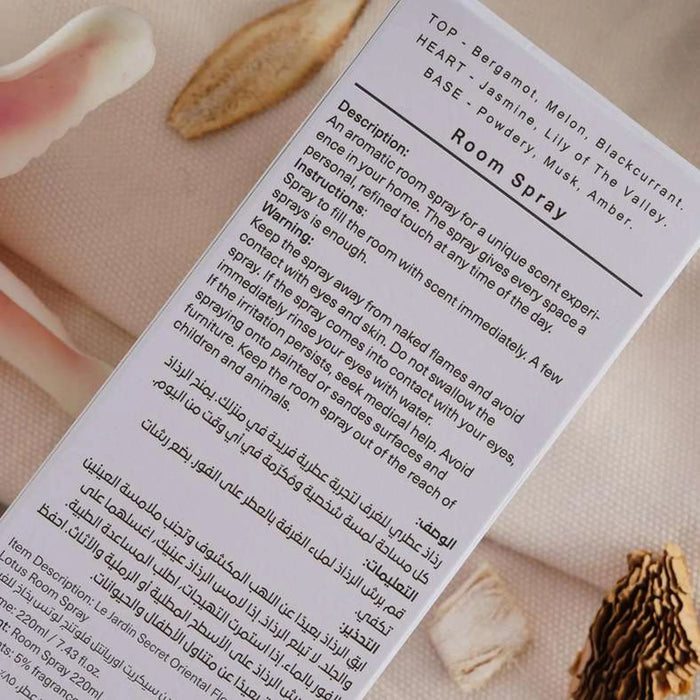 TOP - Bergamot, Melon, Blackcurrant.
HEART - Jasmine, Lily of The Valley.
BASE - Powdery, Musk, Amber.
Room Spray
Description:
An aromatic room spray for a unique scent experi-
ence in your home. The spray gives every space a
personal, refined touch at any time of the day.
Instructions:
Spray to fill the room with scent immediately. A few
sprays is enough.
Warning:
Keep the spray away from naked flames and avoid
contact with eyes and skin. Do not swallow the
spray. If the spray comes into contact with your eyes,
immediately rinse your eyes with water.
If the irritation persists, seek medical help. Avoid
spraying onto painted or sandes surfaces and
furniture. Keep the room spray out of the reach of
children and animals.
الوصف:
رذاذ عطري للغرف لتجربة عطرية فريدة في منزلك. يمنح الرذاذ
كل مساحة لمسة شخصية ومكرمة في أي وقت من اليوم.
التعليمات:
قم برش الرذاذ لملء الغرفة بالعطر على الفور. بضع رشات
تكفي.
التحذير:
ابق الرذاذ بعيدًا عن اللهب المكشوف و تجنب ملامسة العينين
والجلد. لا تبلع الرذاذ. إذا لامس الرذاذ عينيك، اغسلهما على
الفور بالماء. إذا استمرت التهيجات، اطلب المساعدة الطبية.
رش الرذاذ على الأسطح المطلية أو الرملية والأثاث. احفظ
بعيدًا عن متناول الأطفال والحيوانات.
Item Description: Le Jardin Secret Oriental
Lotus Room Spray
220ml / 7.43 fl.oz.
Room Spray 220ml
5% fragrance